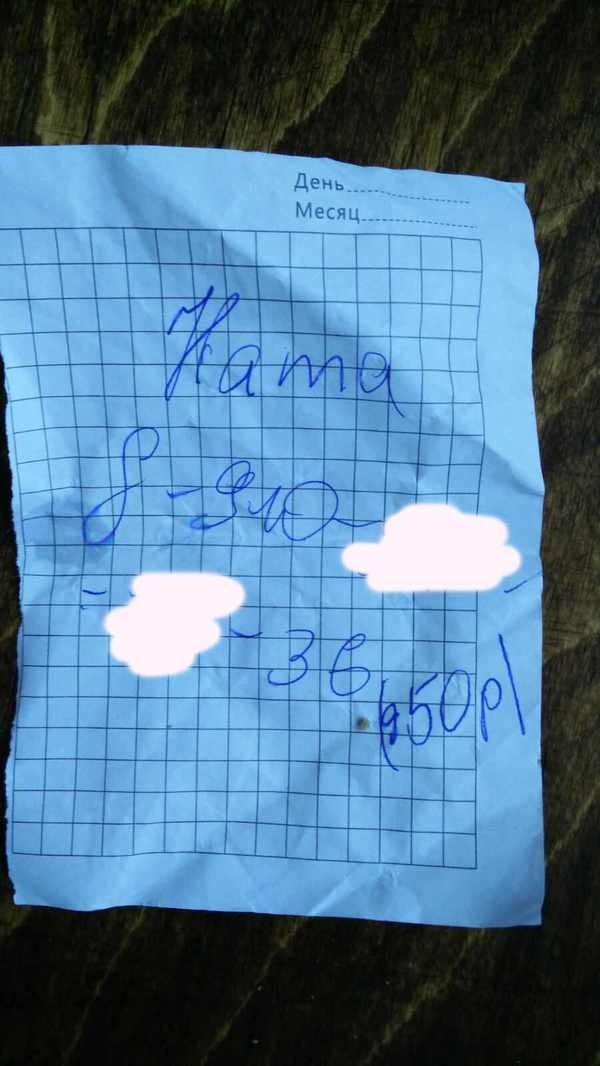 День
Месяц
Ната
8-910-
- - 36
(950р)